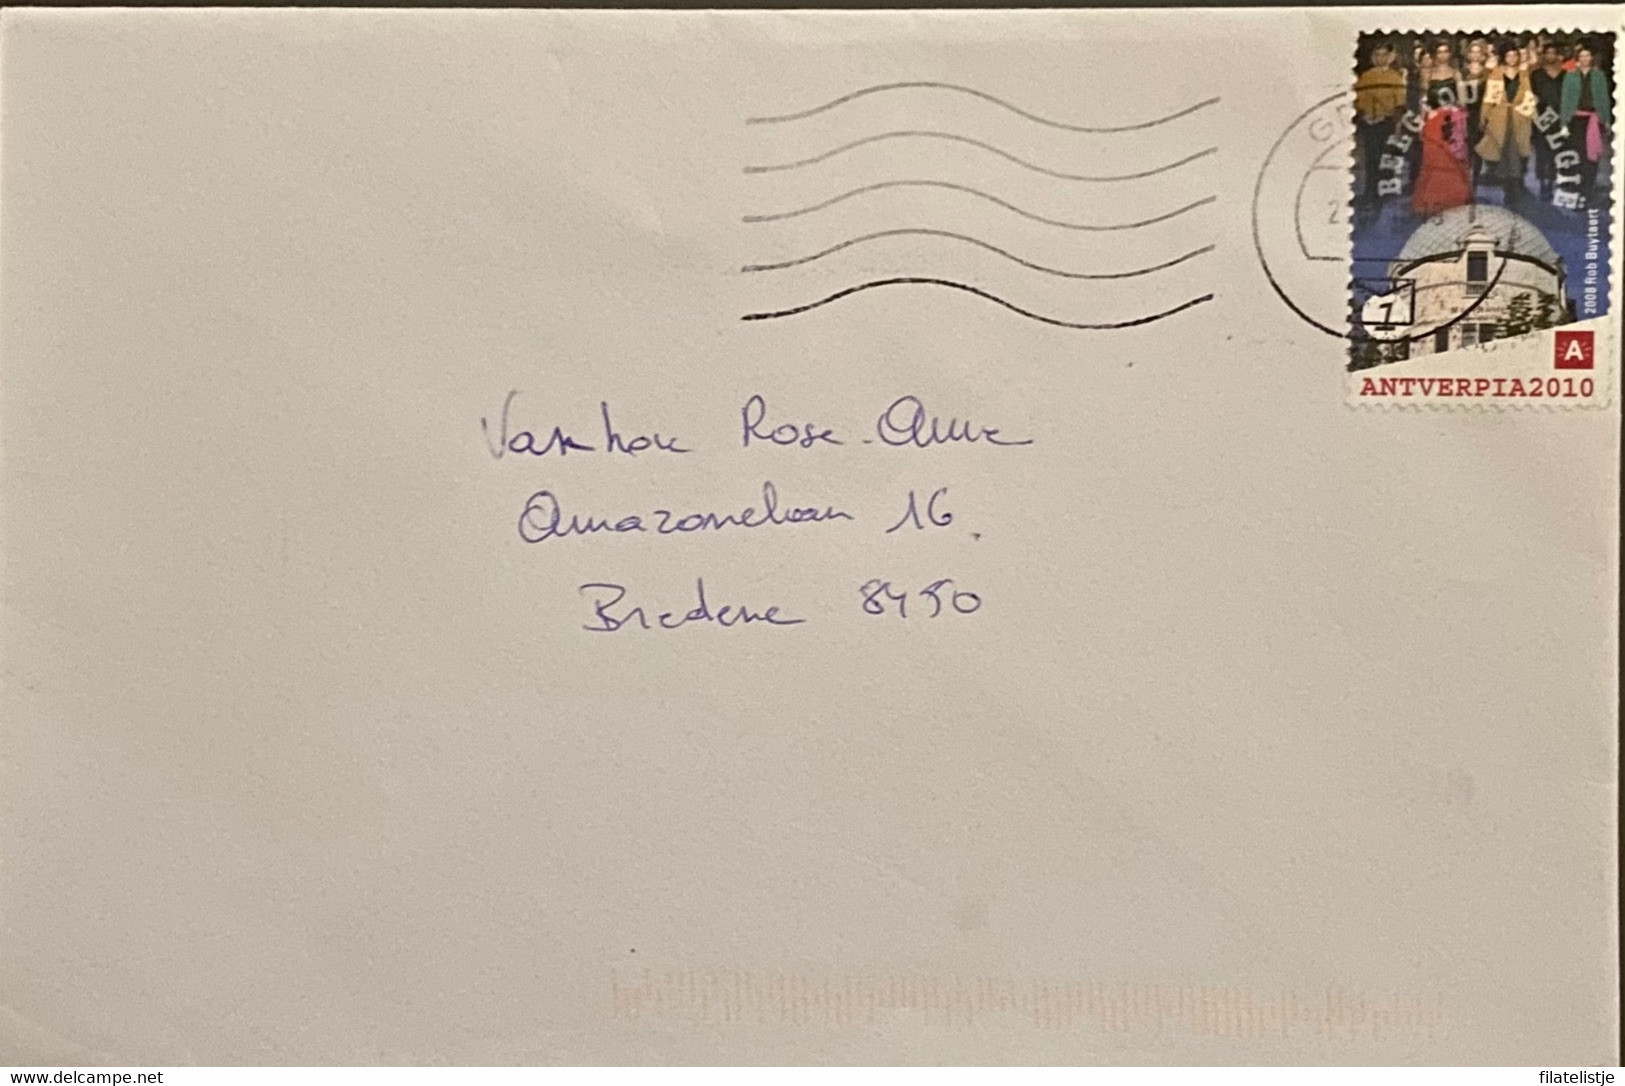 BELGIQUE BELGIË
2008 Rob Buytaert
1
A
ANTVERPIA2010
Rose-Anne
Amazonelaan 16.
Bredene 8450
delcampe.net
filatelistje